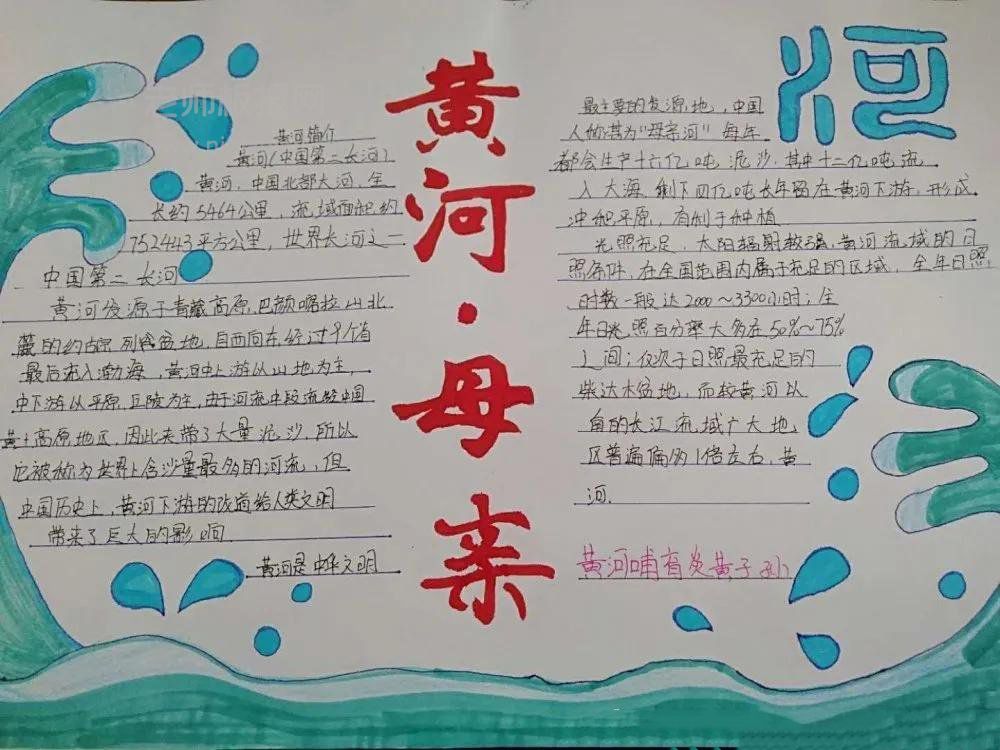 黄河·母亲
河
黄河简介
黄河(中国第二长河)
黄河,中国北部大河,全
长约5464公里,流域面积约
752443平方公里,世界长河之一
中国第二长河
黄河发源于青藏高原巴颜喀拉山北
麓的约古宗列盆地,自西向东经过9个省
最后流入渤海,黄河中上游以山地为主,
中下游以平原、丘陵为主,由于河流中段流经中国
黄土高原地区,因此夹带了大量泥沙,所以
它被称为世界上含沙量最多的河流,但
中国历史上,黄河下游的改道给人类文明
带来了巨大的影响
黄河是中华文明
最主要的发源地,中国
人称其为“母亲河”每年
都会生产十六亿吨泥沙,其中十二亿吨流
入大海,剩下四亿吨长年留在黄河下游,形成
冲积平原,有利于种植
光照充足,太阳辐射较强,黄河流域的日
照条件,在全国范围内属于充足的区域,全年日照
时数一般达2000~3300小时;全
年日照百分率大多在50%~75%
之间;仅次于日照最充足的
柴达木盆地,而较黄河以
自的长江流域广大地
区普遍偏多1倍左右,黄
河.
黄河哺育炎黄子孙